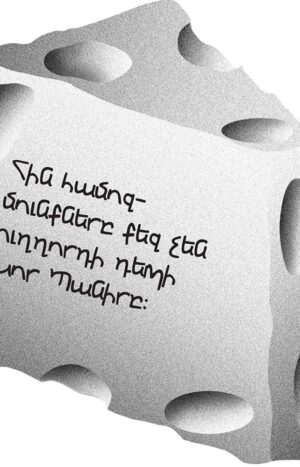 Հին համոզ-
մունքները քեզ չեն
ուղղորդի դեպի
նոր Պանիրը: